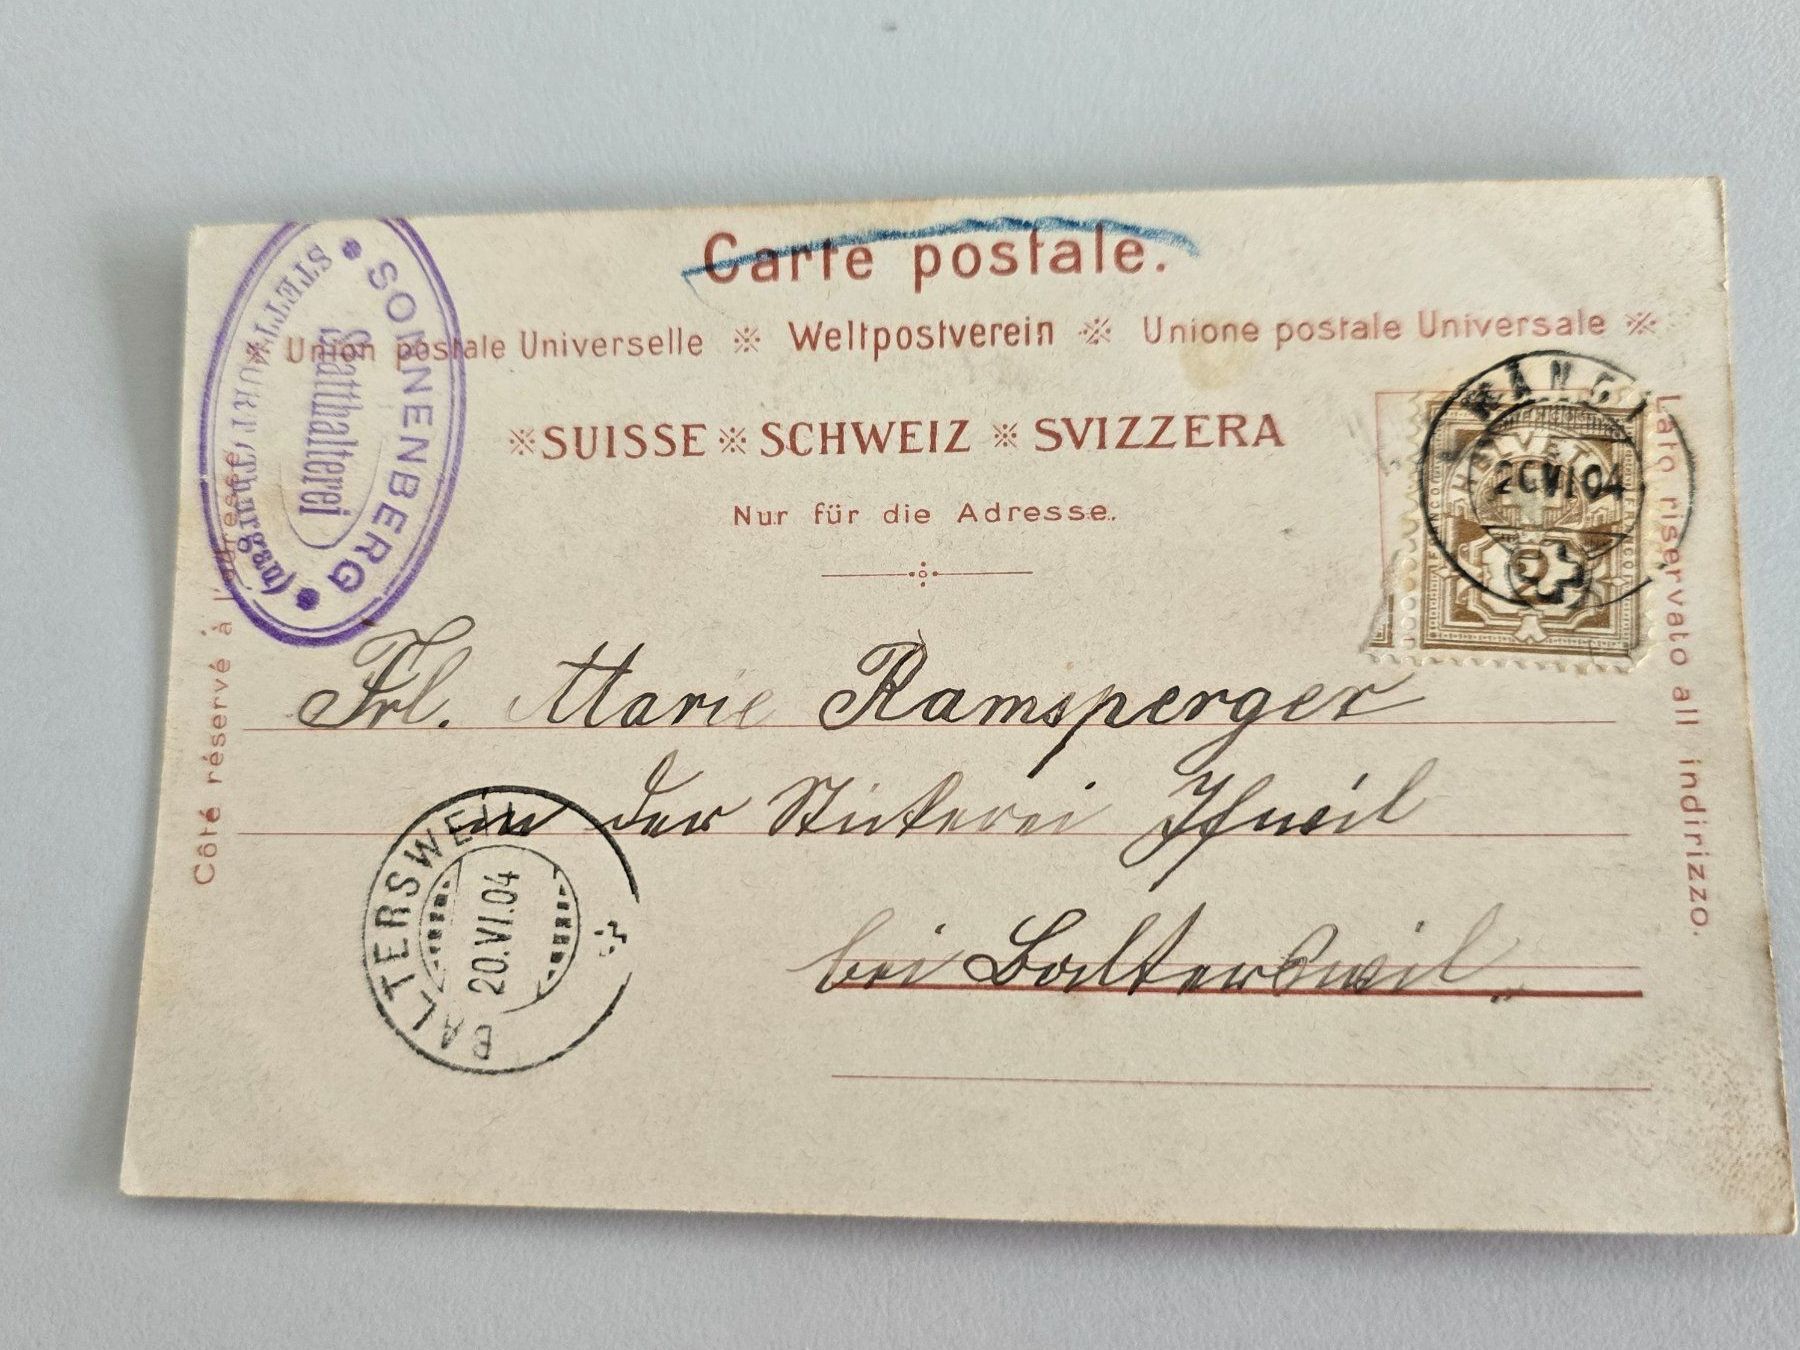 Carte postale.
Union postale Universelle ※ Weltpostverein ※ Unione postale Universale ※
※ SUISSE ※ SCHWEIZ ※ SVIZZERA
Nur für die Adresse.
Côté réservé à l'adresse.
Lato riservato all indirizzo.
SONNENBERG
Statthalterei
STETTFURT (Thurgau)
WÄNGI
20 VI 04
HELVETIA
FRANCO
Frl. Marie Ramsperger
in der Stickerei Ifwil
bei Balterswil
BALTERSWEIL
20.VI.04